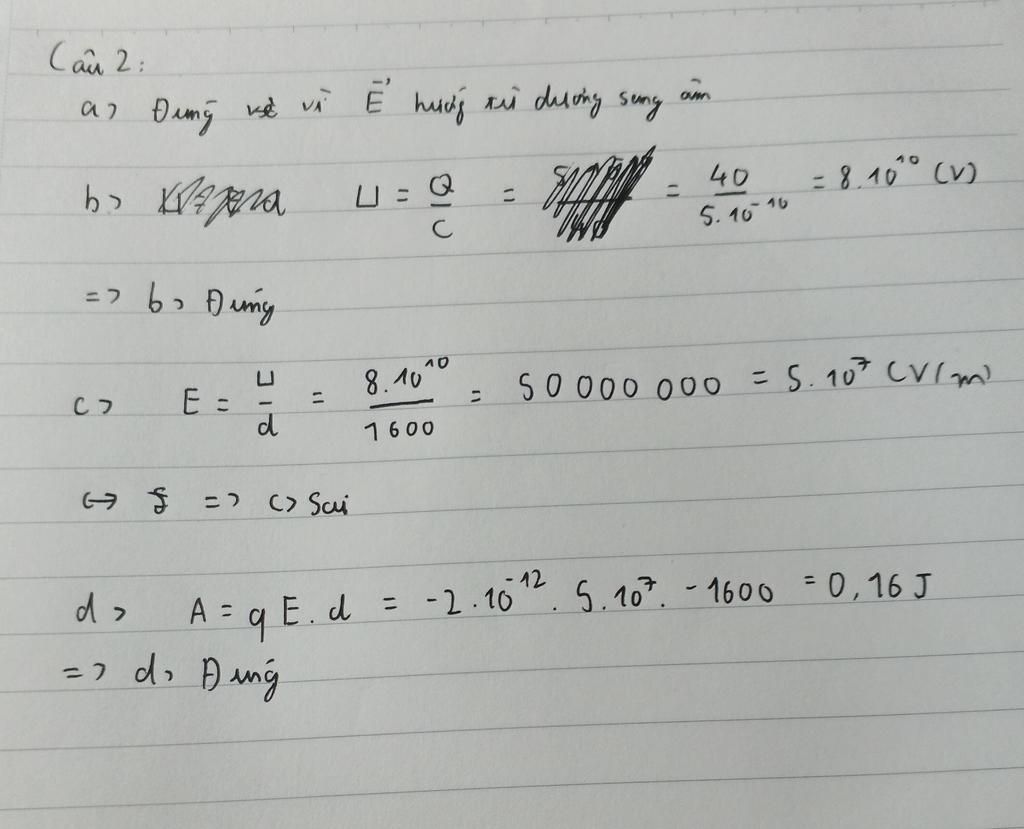 Câu 2:
a> Đúng vì E⃗ hướng từ dương sang âm
b> U = Q/C = = 40/5.10⁻¹⁰ = 8.10¹⁰ (V)
=> b> Đúng
c> E = U/d = 8.10¹⁰/1600 = 50 000 000 = 5.10⁷ (V/m)
<-> => c> Sai
d> A = qE.d = -2.10⁻¹².5.10⁷.-1600 = 0,16J
=> d> Đúng